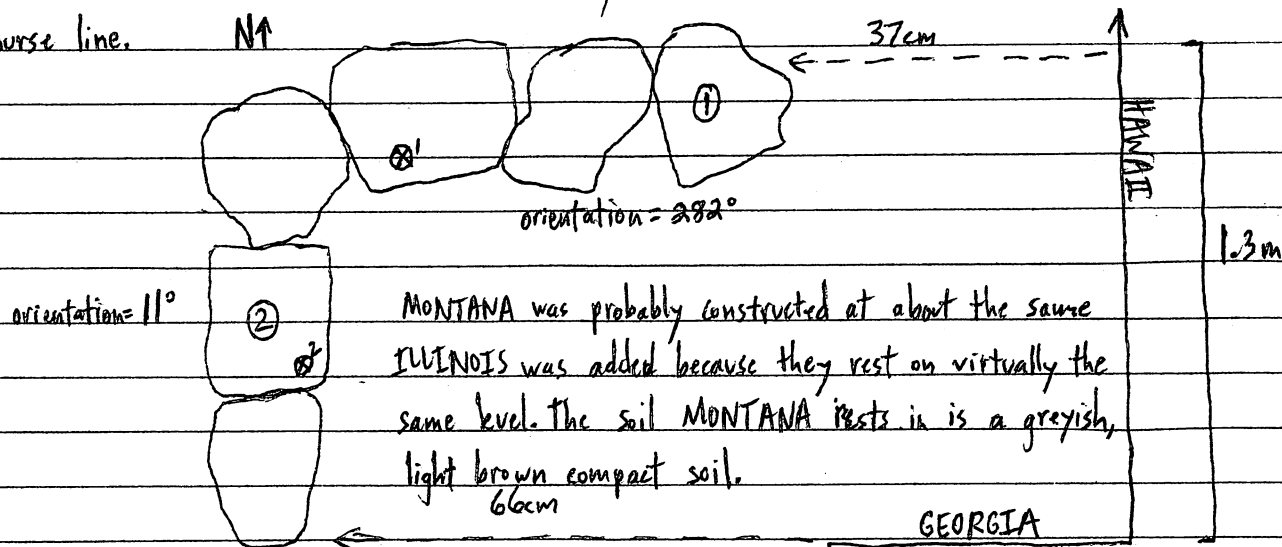 ourse line. N↑ 37cm
① HAWAII
⊗¹
orientation = 282°
1.3m
orientation = 11° ② MONTANA was probably constructed at about the same
⊗² ILLINOIS was added because they rest on virtually the
same level. The soil MONTANA rests in is a greyish,
light brown compact soil.
66cm
GEORGIA